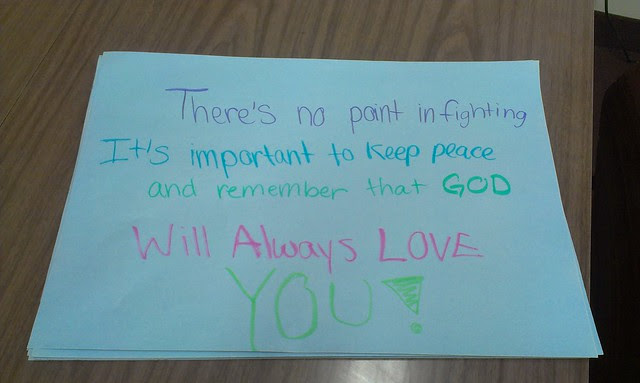 There's no point in fighting
It's important to keep peace
and remember that GOD
Will Always LOVE
YOU!